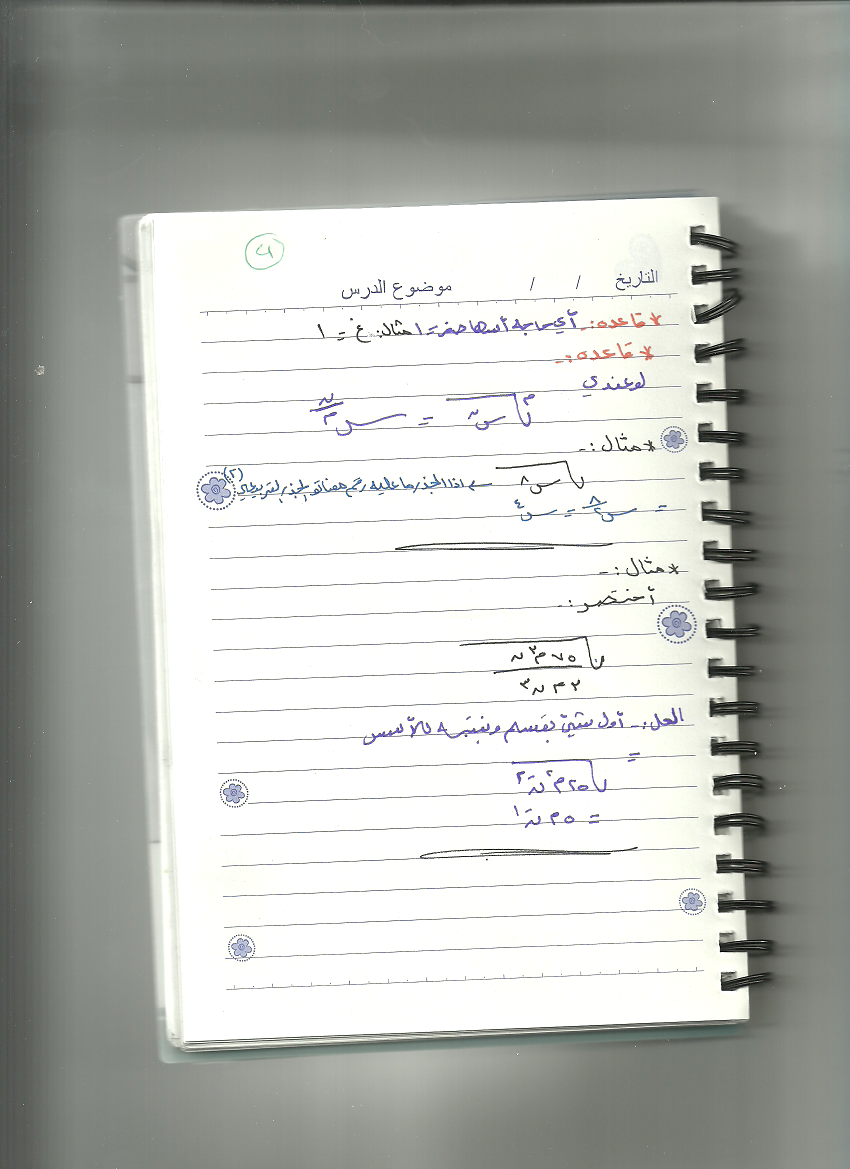 ٩
التاريخ / / موضوع الدرس
* قاعده:- أي حاجه أسها صفر = ١ مثال: غ٠ = ١
* قاعده:-
لو عندي
م√س^ن = س^(ن/م)
* مثال:-
√س^٨ ← اذا الجذر ما عليه رقم معناته الجذر التربيعي (٢)
= س^(٨/٢) = س^٤
* مثال:-
أختصر:-
√(٧٥ م^٣ ن / ٣ م ن^٣)
الحل:- أول شيئ بقسم وبنتبه للأسس
=
√٢٥ م^٢ ن^-٢
= ٥ م ن^-١